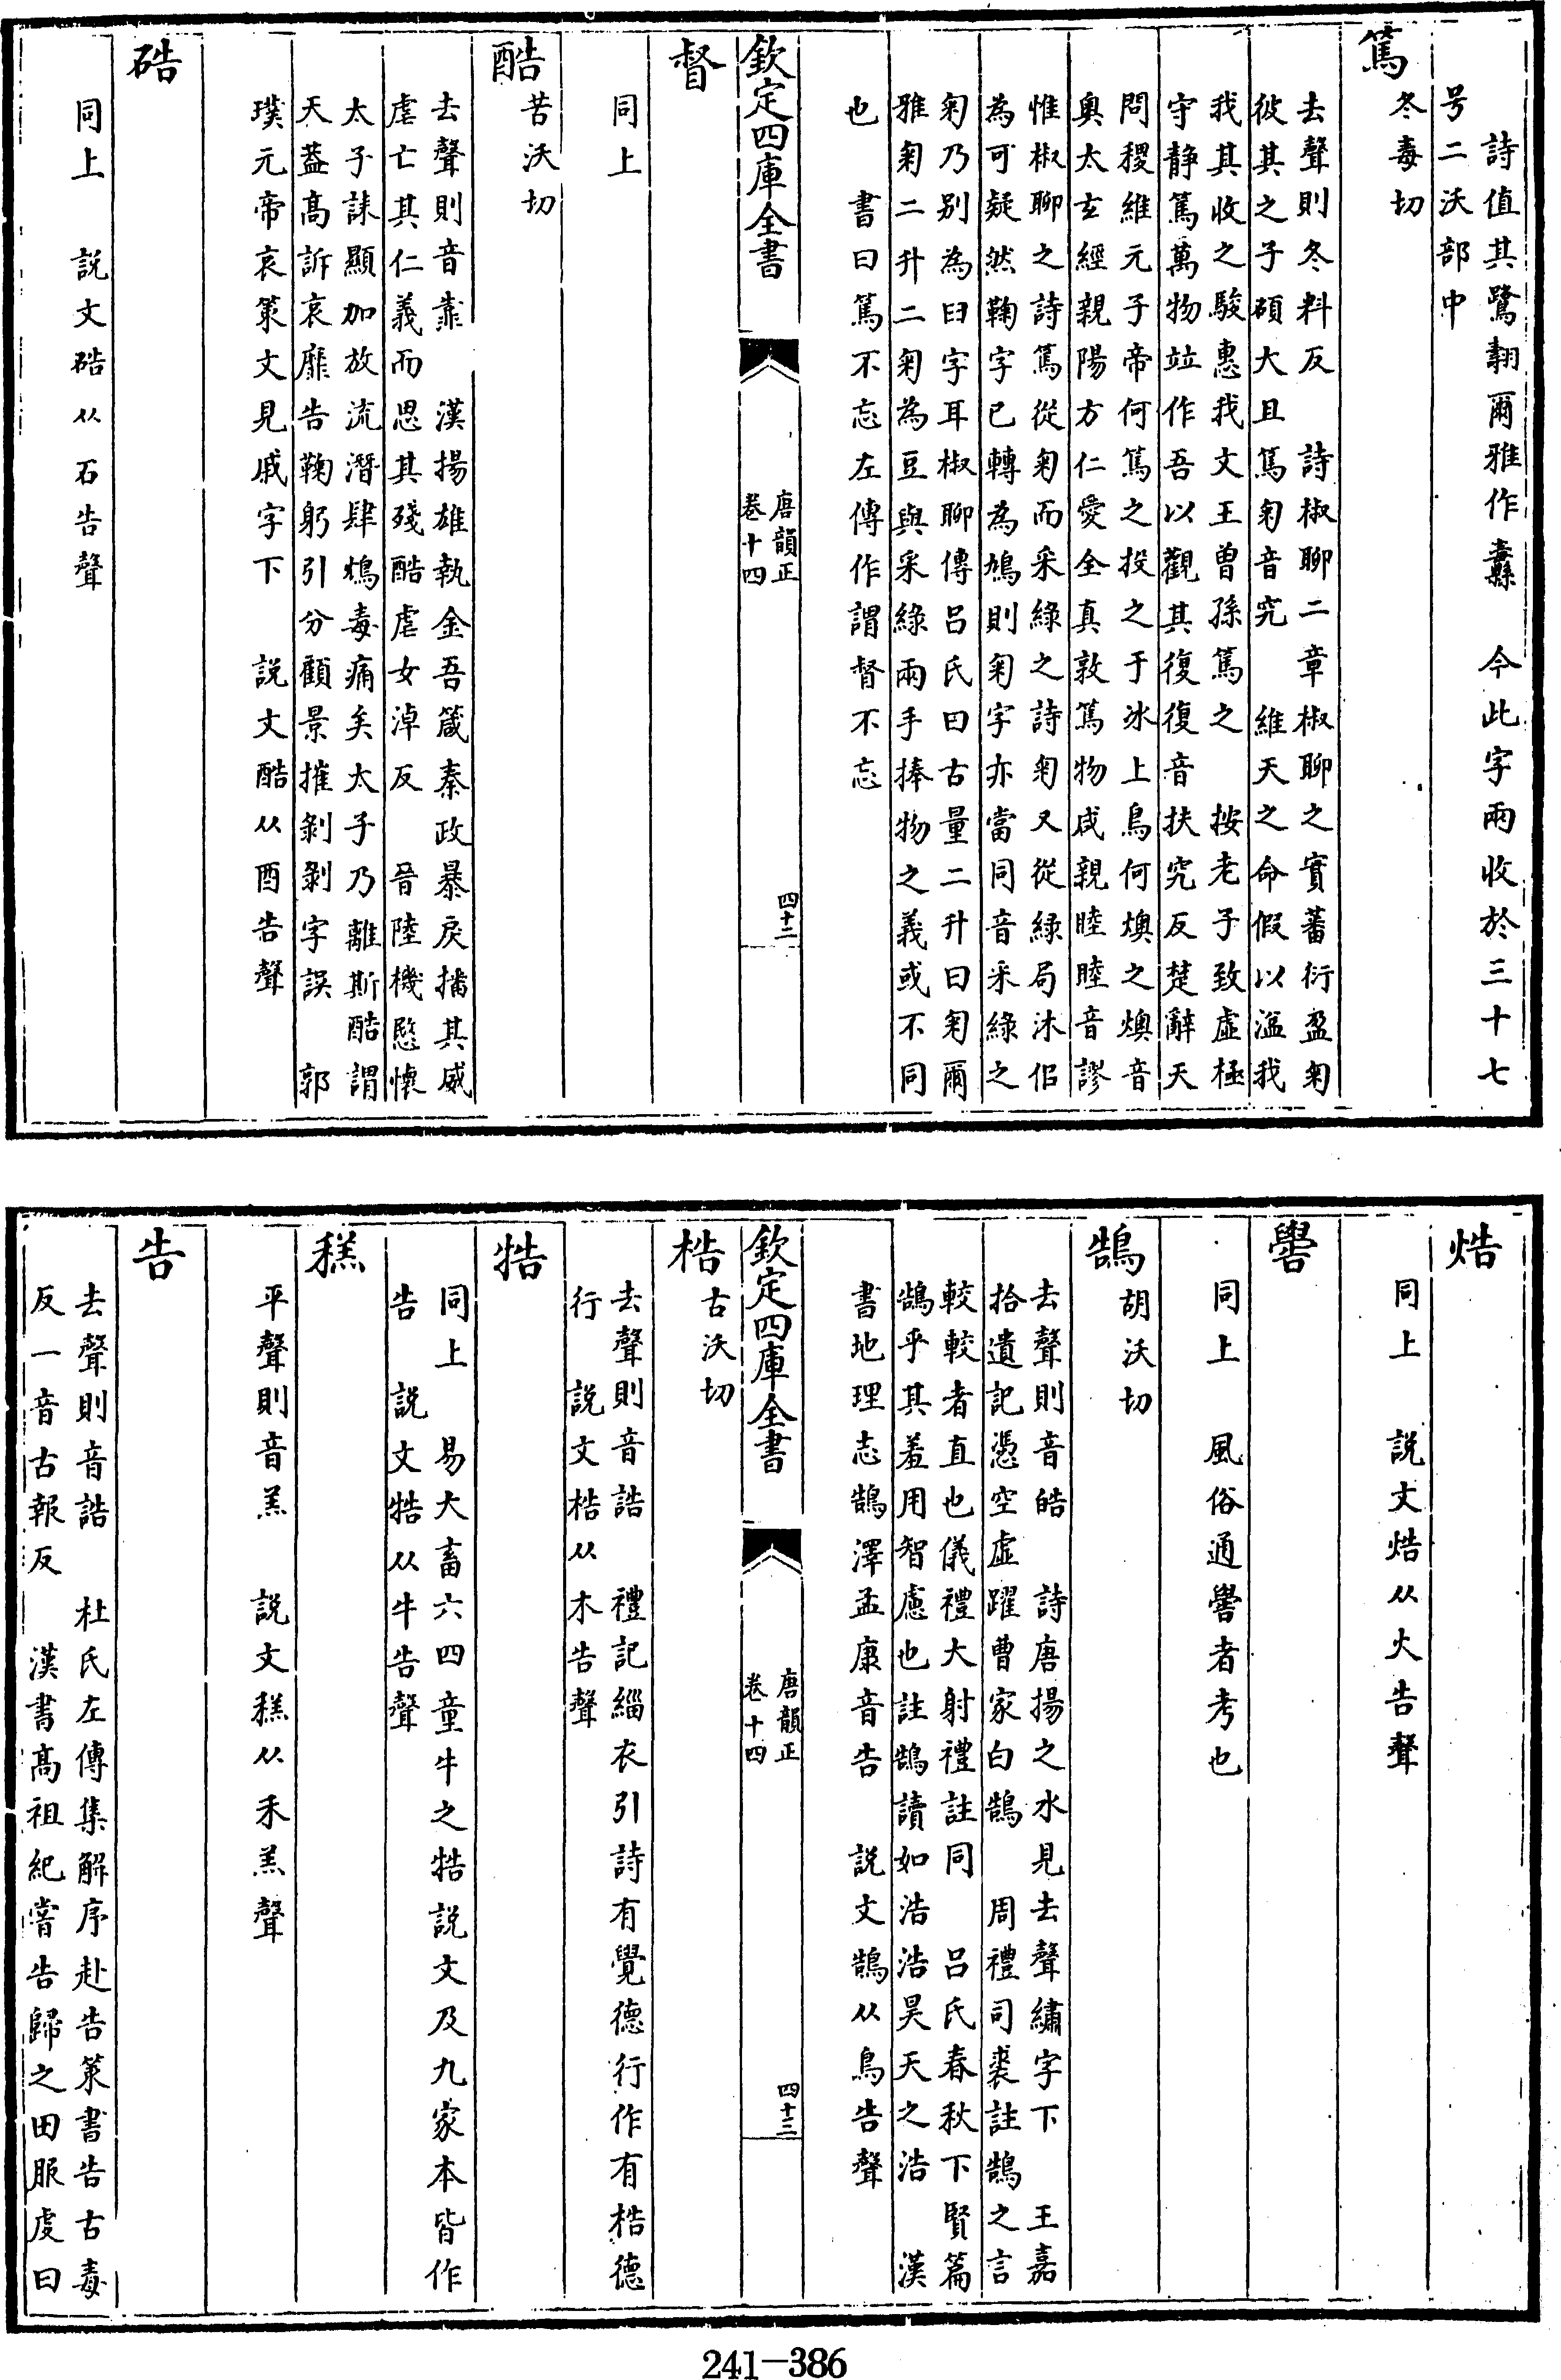 詩值其鷺翿爾雅作纛　今此字兩收於三十七
号二沃部中
篤
冬毒切
去聲則冬料反　詩椒聊二章椒聊之實蕃衍盈匊
彼其之子碩大且篤匊音究　維天之命假以溢我
我其收之駿惠我文王曾孫篤之　按老子致虛極
守靜篤萬物竝作吾以觀其復復音扶究反楚辭天
問稷維元子帝何篤之投之于冰上鳥何燠之燠音
奥太玄經親陽方仁愛全真敦篤物咸親睦睦音謬
惟椒聊之詩篤從匊而采綠之詩匊又從綠局沐侶
為可疑然鞠字已轉為鳩則匊字亦當同音采綠之
匊乃別為曰字耳椒聊傳吕氏曰古量二升曰匊爾
雅匊二升二匊為豆與采綠兩手捧物之義或不同
也　書曰篤不忘左傳作謂督不忘
欽定四庫全書
唐韻正
卷十四
四十二
督
同上
酷
苦沃切
去聲則音靠　漢揚雄執金吾箴秦政暴戾播其威
虐亡其仁義而思其殘酷虐女淖反　晉陸機愍懷
太子誄顯加放流潛肆鴆毒痛矣太子乃離斯酷謂
天葢髙訴哀哀靡告鞠躬引分顧景摧剝剝字誤　郭
璞元帝哀策文見戚字下　說文酷从酉告聲
硞
同上　說文硞从石告聲
焅
同上　說文焅从火告聲
嚳
同上　風俗通嚳者考也
鵠
胡沃切
去聲則音皓　詩唐揚之水見去聲繡字下　王嘉
拾遺記憑空虛躍曹家白鵠　周禮司裘註鵠之言
較較者直也儀禮大射禮註同　吕氏春秋下賢篇
鵠乎其羞用智慮也註鵠讀如浩浩昊天之浩　漢
書地理志鵠澤孟康音告　說文鵠从鳥告聲
欽定四庫全書
唐韻正
卷十四
四十三
梏
古沃切
去聲則音誥　禮記緇衣引詩有覺德行作有梏德
行　說文梏从木告聲
牿
同上　易大畜六四童牛之牿說文及九家本皆作
告　說文牿从牛告聲
䅵
平聲則音羔　說文䅵从禾羔聲
告
去聲則音誥　杜氏左傳集解序赴告策書告古毒
反一音古報反　漢書髙祖紀嘗告歸之田服虔曰
241-386